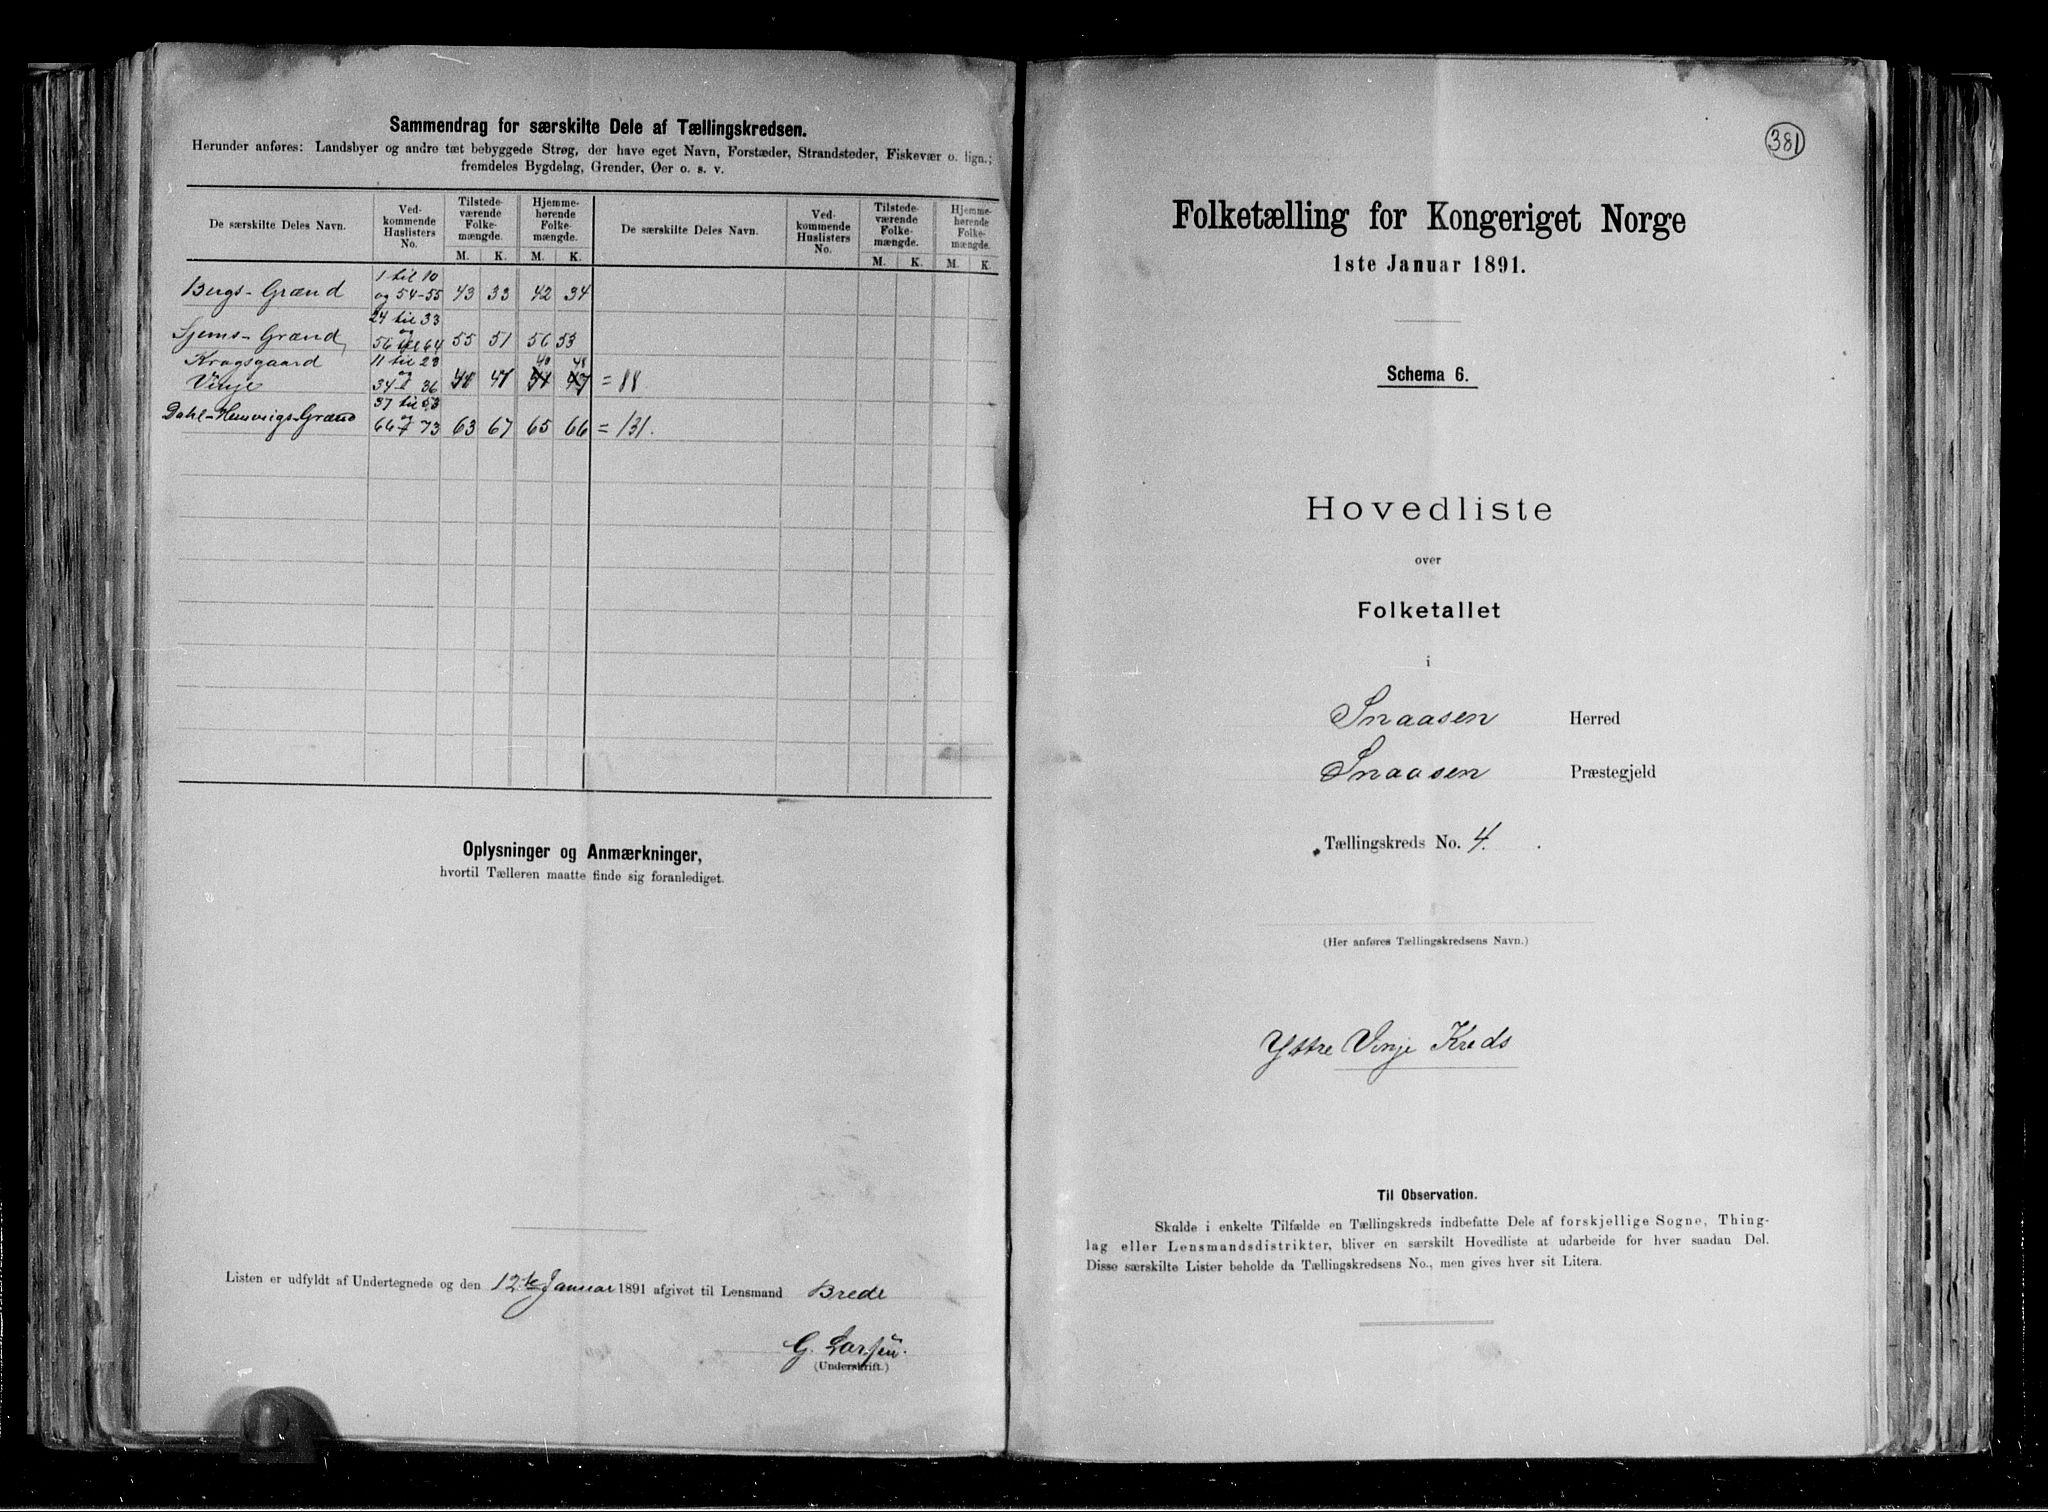 Sammendrag for særskilte Dele af Tællingskredsen.
Herunder anføres: Landsbyer og andre tæt bebyggede Strøg, der have eget Navn, Forstæder, Strandsteder, Fiskevær o. lign.;
fremdeles Bygdelag, Grender, Øer o. s. v.
De særskilte Deles Navn. Ved-kommende Huslisters No. Tilstede-værende Folke-mængde. Hjemme-hørende Folke-mængde. De særskilte Deles Navn. Ved-kommende Huslisters No. Tilstede-værende Folke-mængde. Hjemme-hørende Folke-mængde.
M. K. M. K. M. K. M. K.
1 til 10
Bergs-Grænd og 54-55 43 33 42 34
24 til 33
og
Sjems-Grænd, 56 til 64 55 51 56 53
Kragsgaard 11 til 23 40 48
og
Vinje 34 36 41 47 = 88.
37 til 53
og
Dahl-Hemvigs-Grænd 66 73 63 67 65 66 = 131.
Oplysninger og Anmærkninger,
hvortil Tælleren maatte finde sig foranlediget.
Listen er udfyldt af Undertegnede og den 12te Januar 1891 afgivet til Lensmand Brede
G. Larsen.
(Underskrift.)
381
Folketælling for Kongeriget Norge
1ste Januar 1891.
Schema 6.
Hovedliste
over
Folketallet
i
Snaasen Herred
Snaasen Præstegjeld
Tællingskreds No. 4.
(Her anføres Tællingskredsens Navn.)
Ystre Vinje Kreds
Til Observation.
Skulde i enkelte Tilfælde en Tællingskreds indbefatte Dele af forskjellige Sogne, Thing-
lag eller Lensmandsdistrikter, bliver en særskilt Hovedliste at udarbeide for hver saadan Del.
Disse særskilte Lister beholde da Tællingskredsens No., men gives hver sit Litera.